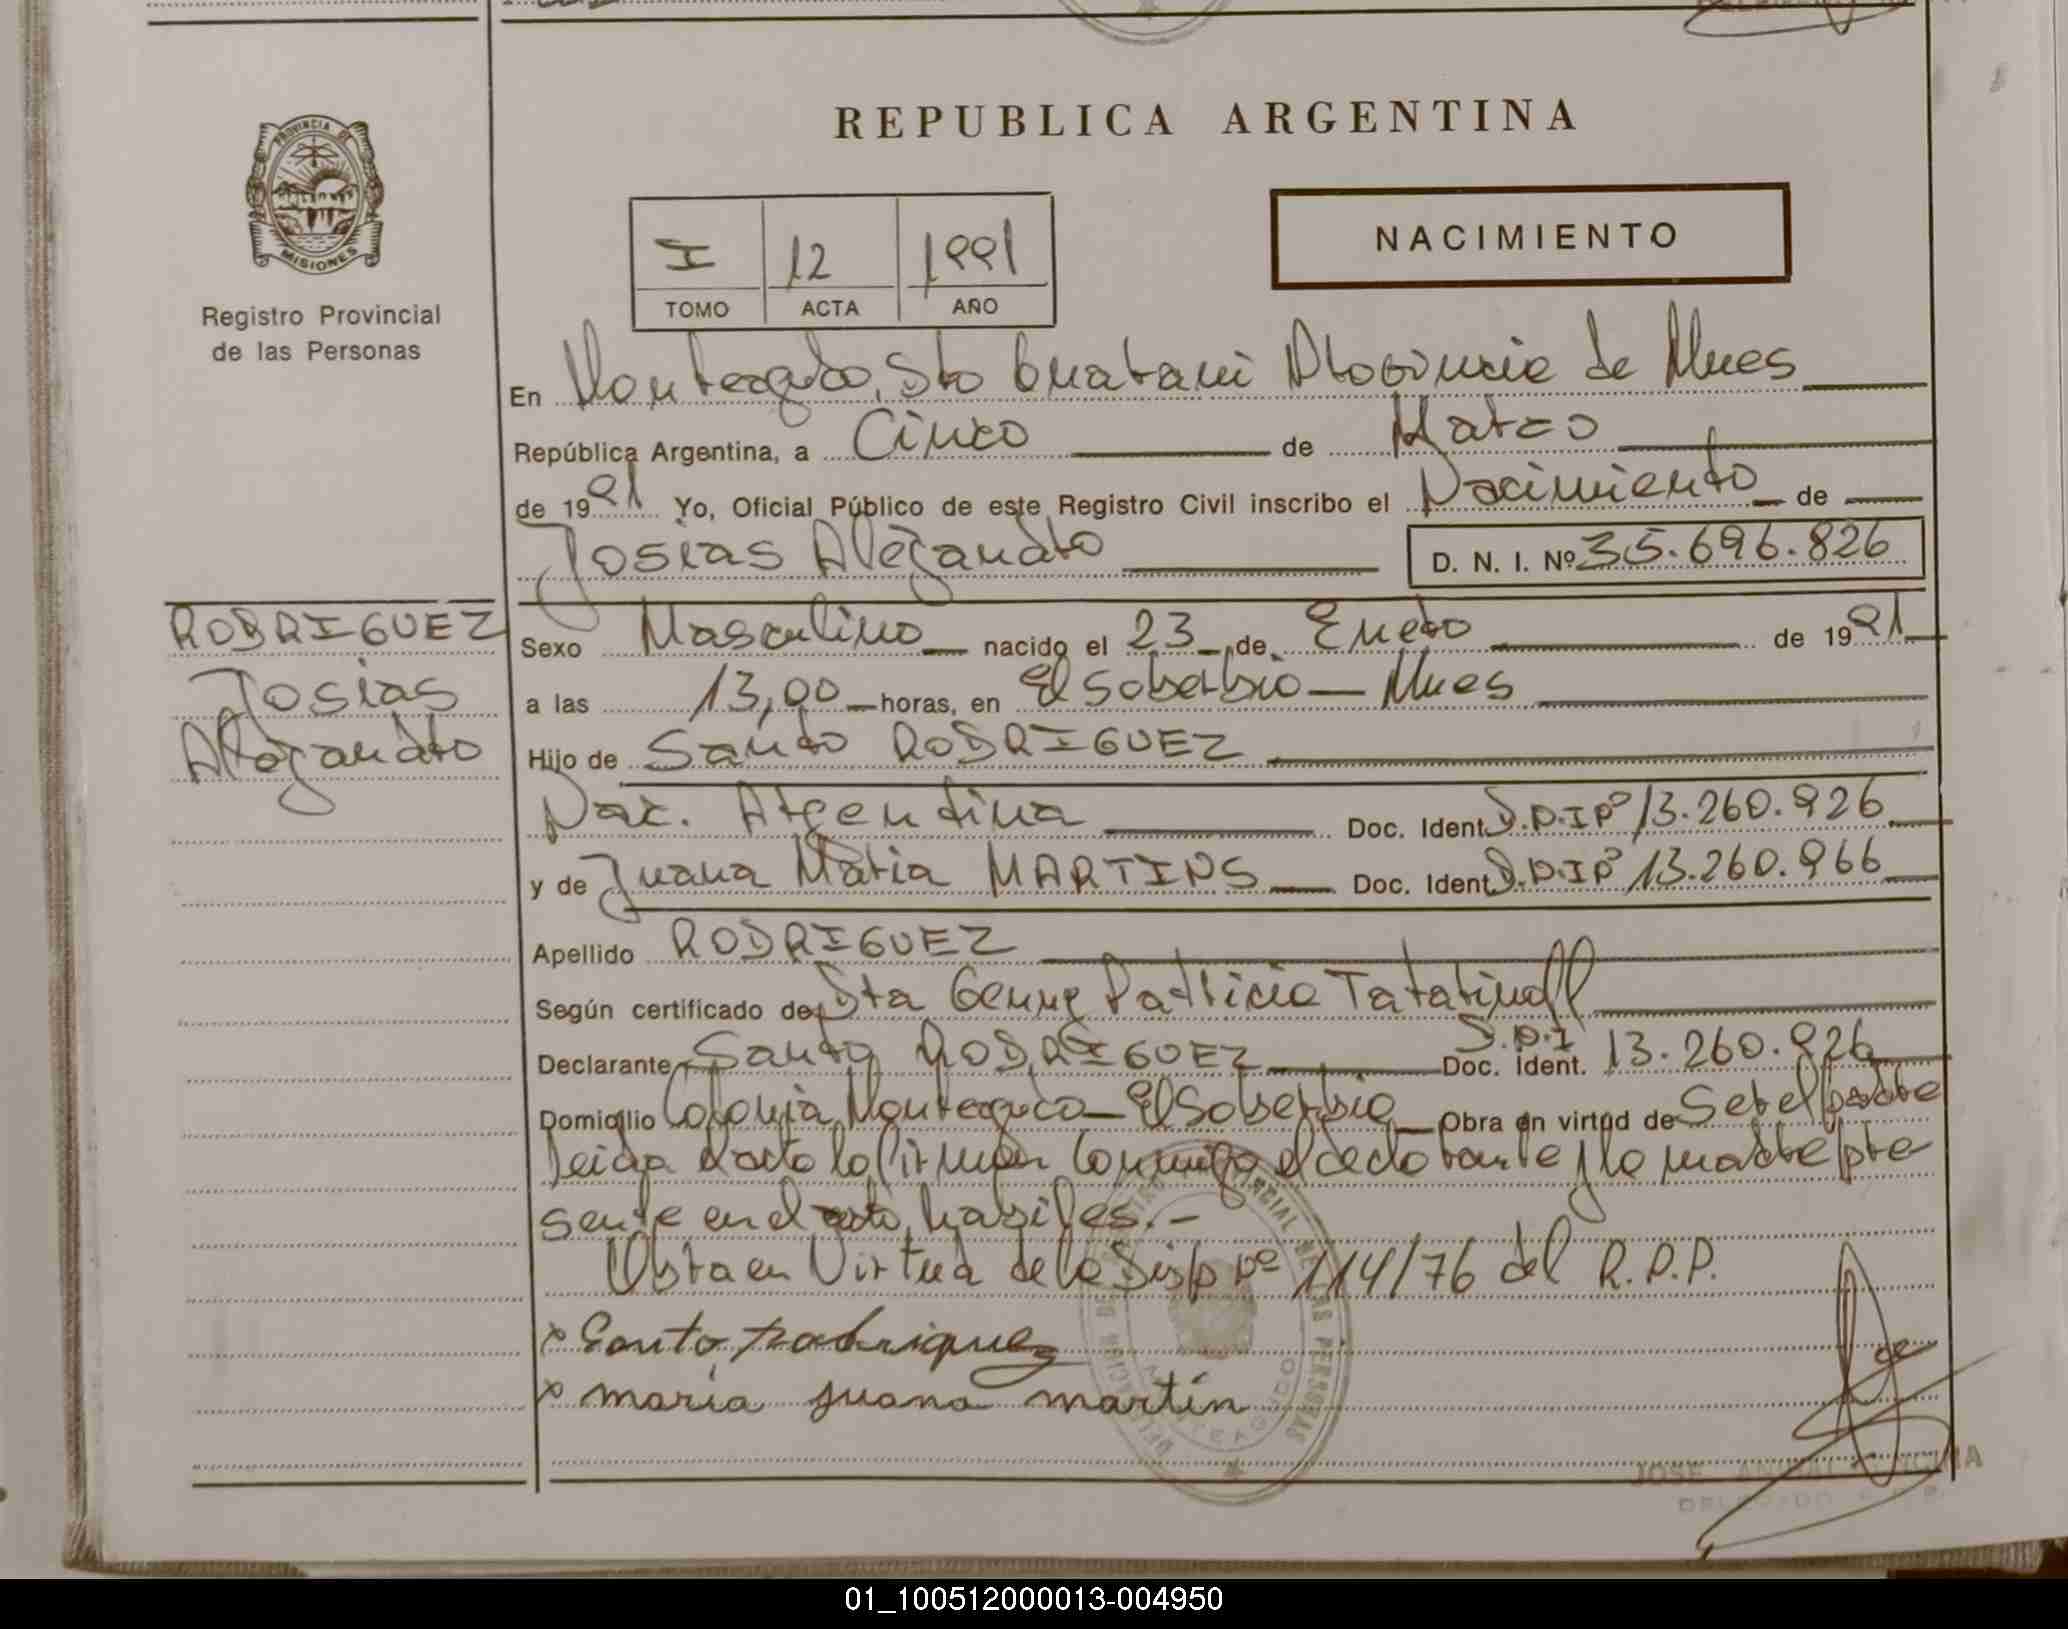 REPUBLICA ARGENTINA
PROVINCIA DE
MISIONES
Registro Provincial
de las Personas
I 12 1991
TOMO ACTA AÑO
NACIMIENTO
En Monteagudo, Dto Guarani Provincia de Mnes
República Argentina, a Cinco de Marzo
de 1991 Yo, Oficial Público de este Registro Civil inscribo el Nacimiento de
Josias Alejandro D. N. I. Nº 35.696.826
RODRIGUEZ
Josias
Alejandro
Sexo Masculino nacido el 23 de Enero de 1991
a las 13,00 horas, en El Soberbio - Mnes
Hijo de Santo RODRIGUEZ
Nac. Argentina Doc. Ident. D.N.I Nº 13.260.926
y de Juana Maria MARTINS Doc. Ident. D.N.I Nº 13.260.966
Apellido RODRIGUEZ
Según certificado de Dra Patricia
Declarante Santo RODRIGUEZ Doc. Ident. D.N.I 13.260.926
Domicilio Colonia Monteagudo - El Soberbio Obra en virtud de Ser el padre
Leida el acta la firman conmigo el declarante y la madre pre
sente en el acto, habiles.-
Obra en Virtud de la Disp Nº 114/76 del R.P.P.
x Santo Rodriguez
x maria juana martin
JOSE ANIBAL
DELEGADO
01_100512000013-004950